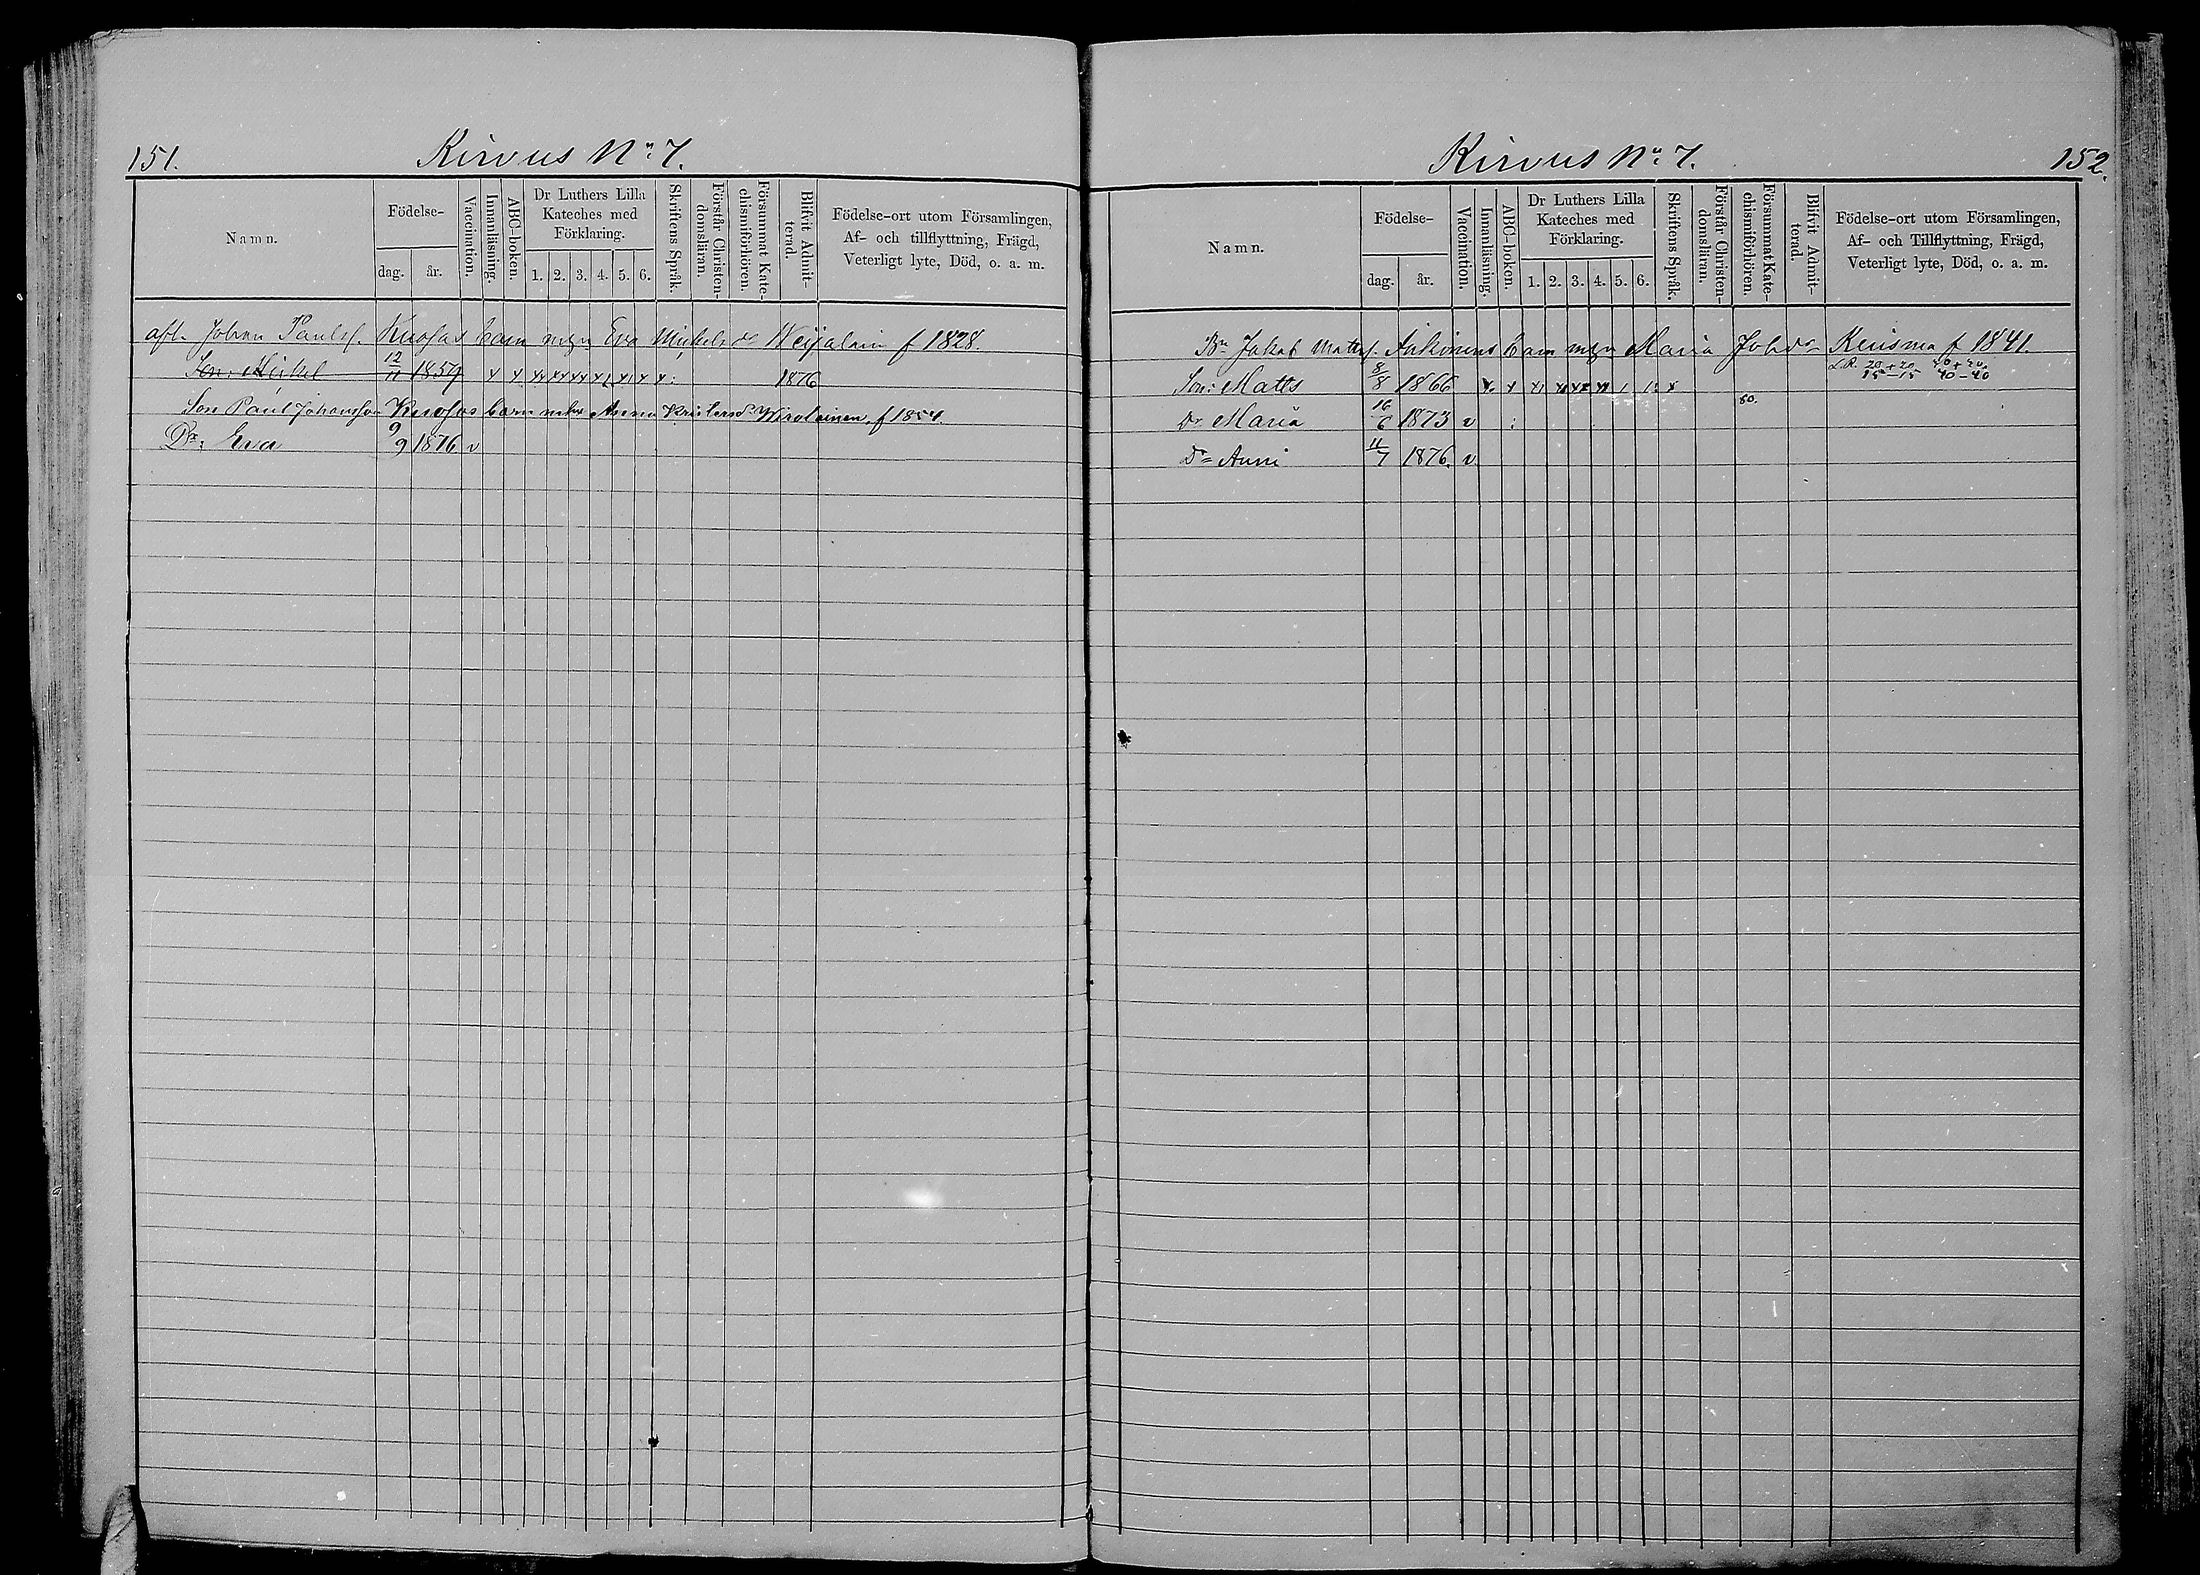 151.
Kirvus No. 7.
Namn.
Födelse-
dag.
år.
Vaccination.
Innanläsning.
ABC-boken.
Dr Luthers Lilla
Kateches med
Förklaring.
1. 2. 3. 4. 5. 6.
Skriftens Språk.
Förstår Christen-
domsläran.
Försummat Kate-
chismiförhören.
Blifvit Admit-
terad.
Födelse-ort utom Församlingen,
Af- och tillflyttning, Frägd,
Veterligt lyte, Död, o. a. m.
afl. Johan Paulss. Kuosas barn m Eva Mickelsdr f 1828.
Son: Mickel 12/11 1859 x x x 1876
Son Paul Johansson Kuosas barn m Anna Wirolainen, f 1854.
Dr: Eva 9/9 1876 v
Kirvus No. 7.
152.
Namn.
Födelse-
dag.
år.
Vaccination.
Innanläsning.
ABC-boken.
Dr Luthers Lilla
Kateches med
Förklaring.
1. 2. 3. 4. 5. 6.
Skriftens Språk.
Förstår Christen-
domsläran.
Försummat Kate-
chismiförhören.
Blifvit Admit-
terad.
Födelse-ort utom Församlingen,
Af- och Tillflyttning, Frägd,
Veterligt lyte, Död, o. a. m.
Bn Jakob Matss. Barn m Maria Johdr Kuisma f 1841.
L.R. 20 + 20 40 + 40
15 - 15 40 - 40
Son: Matts 8/8 1866 x x
Dr Maria 16/6 1873 v 80.
Dr Anni 11/7 1876. v.